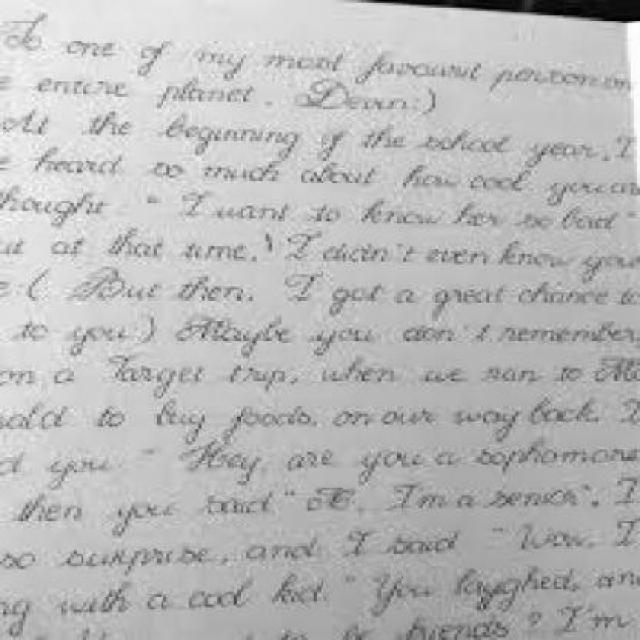 To one of my most favourit person in
e entire planet. Devin:)
the beginning of the school year, I
e heard so much about how cool you
thought " I want to know her so bad "
ut at that time, I didn't even know your
e:( But then, I got a great chance to
to you:) Maybe you don't remember,
on a Target trip, when we ran to
to buy foods, on our way back. I
d you " Hey are you a sophomore
then you said " I'm a senior". I
so surprise, and I said " Wow. I
ng with a cool kid." You laughed, and
to be friends I'm